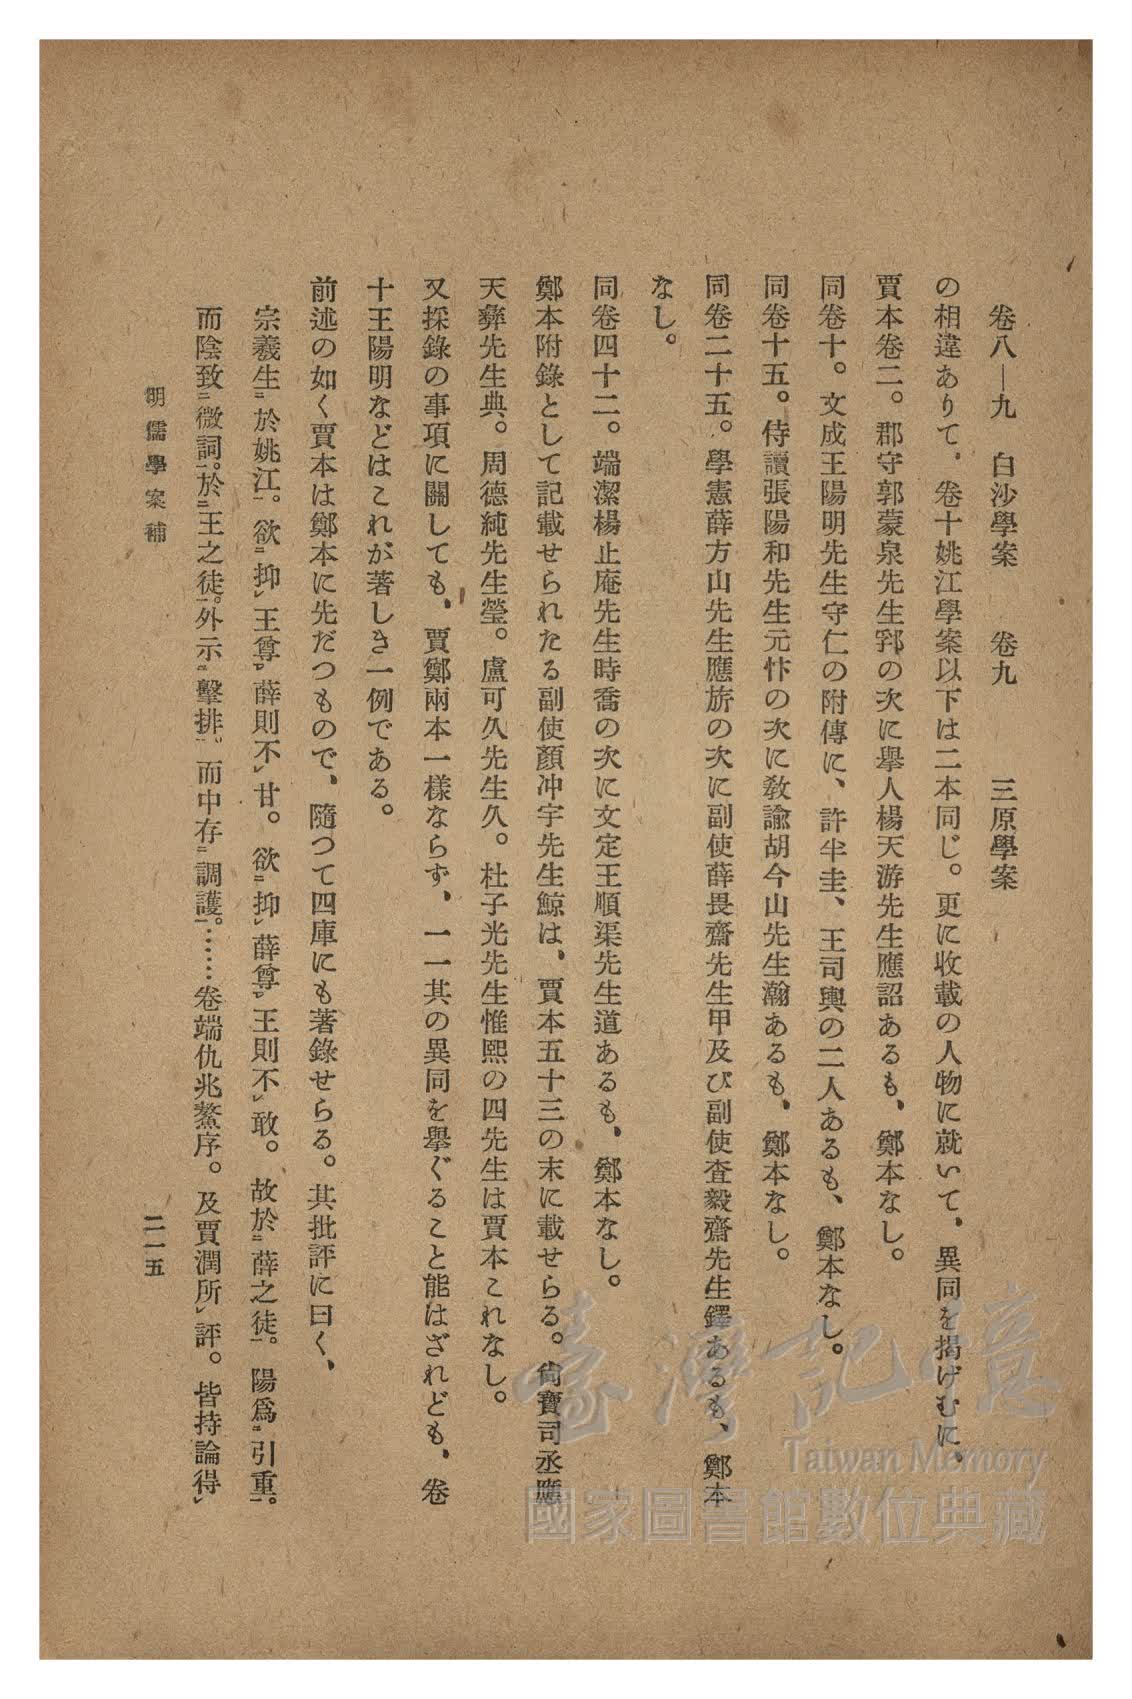 卷八—九　白沙學案　　卷九　　　三原學案
の相違ありて、卷十姚江學案以下は二本同じ。更に收載の人物に就いて、異同を揭げむに、
賈本卷二。郡守郭蒙泉先生郛の次に擧人楊天游先生應詔あるも、鄭本なし。
同卷十。文成王陽明先生守仁の附傳に、許半圭、王司輿の二人あるも、鄭本なし。
同卷十五。侍讀張陽和先生元忭の次に敎諭胡今山先生瀚あるも、鄭本なし。
同卷二十五。學憲薛方山先生應旂の次に副使薛畏齋先生甲及び副使査毅齋先生鐸あるも、鄭本
なし。
同卷四十二。端潔楊止庵先生時喬の次に文定王順渠先生道あるも、鄭本なし。
鄭本附錄として記載せられたる副使顏冲宇先生鯨は、賈本五十三の末に載せらる。尙寶司丞應
天彝先生典。周德純先生瑩。盧可久先生久。杜子光先生惟熙の四先生は賈本これなし。
又採錄の事項に關しても、賈鄭兩本一樣ならず、一一其の異同を擧ぐること能はざれども、卷
十王陽明などはこれが著しき一例である。
前述の如く賈本は鄭本に先だつもので、隨つて四庫にも著錄せらる。其批評に曰く、
宗羲生二於姚江一。欲二抑レ王尊一レ薛則不レ甘。欲二抑レ薛尊一レ王則不レ敢。故於二薛之徒一。陽爲二引重一。
而陰致二微詞一。於二王之徒一。外示二擊排一。而中存二調護一。……卷端仇兆鰲序。及賈潤所レ評。皆持論得レ
明儒學案補
二一五
臺灣記憶
Taiwan Memory
國家圖書館數位典藏